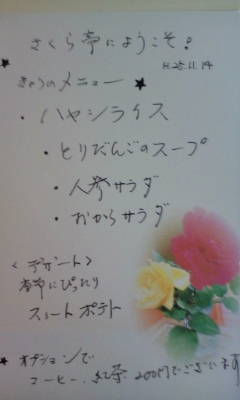 さくら亭にようこそ!
H25.11.14
★ きょうのメニュー ★
・ハヤシライス
・とりだんごのスープ
・人参サラダ
・おからサラダ
<デザート>
にぴったり
スイートポテト
★ オプションで
コーヒー、紅茶 200円でございます